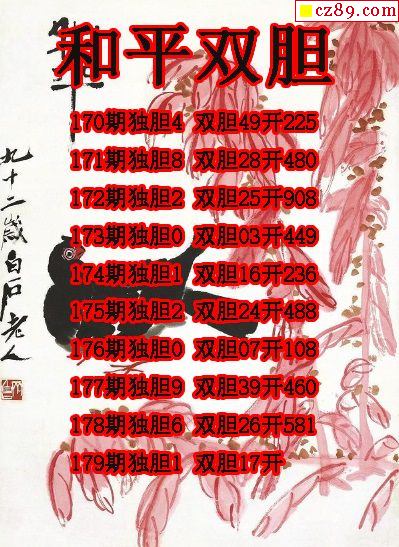 cz89.com
和平
和平双胆
170期独胆4 双胆49开225
171期独胆8 双胆28开480
172期独胆2 双胆25开908
173期独胆0 双胆03开449
174期独胆1 双胆16开236
175期独胆2 双胆24开488
176期独胆0 双胆07开108
177期独胆9 双胆39开460
178期独胆6 双胆26开581
179期独胆1 双胆17开
九十二岁白石老人